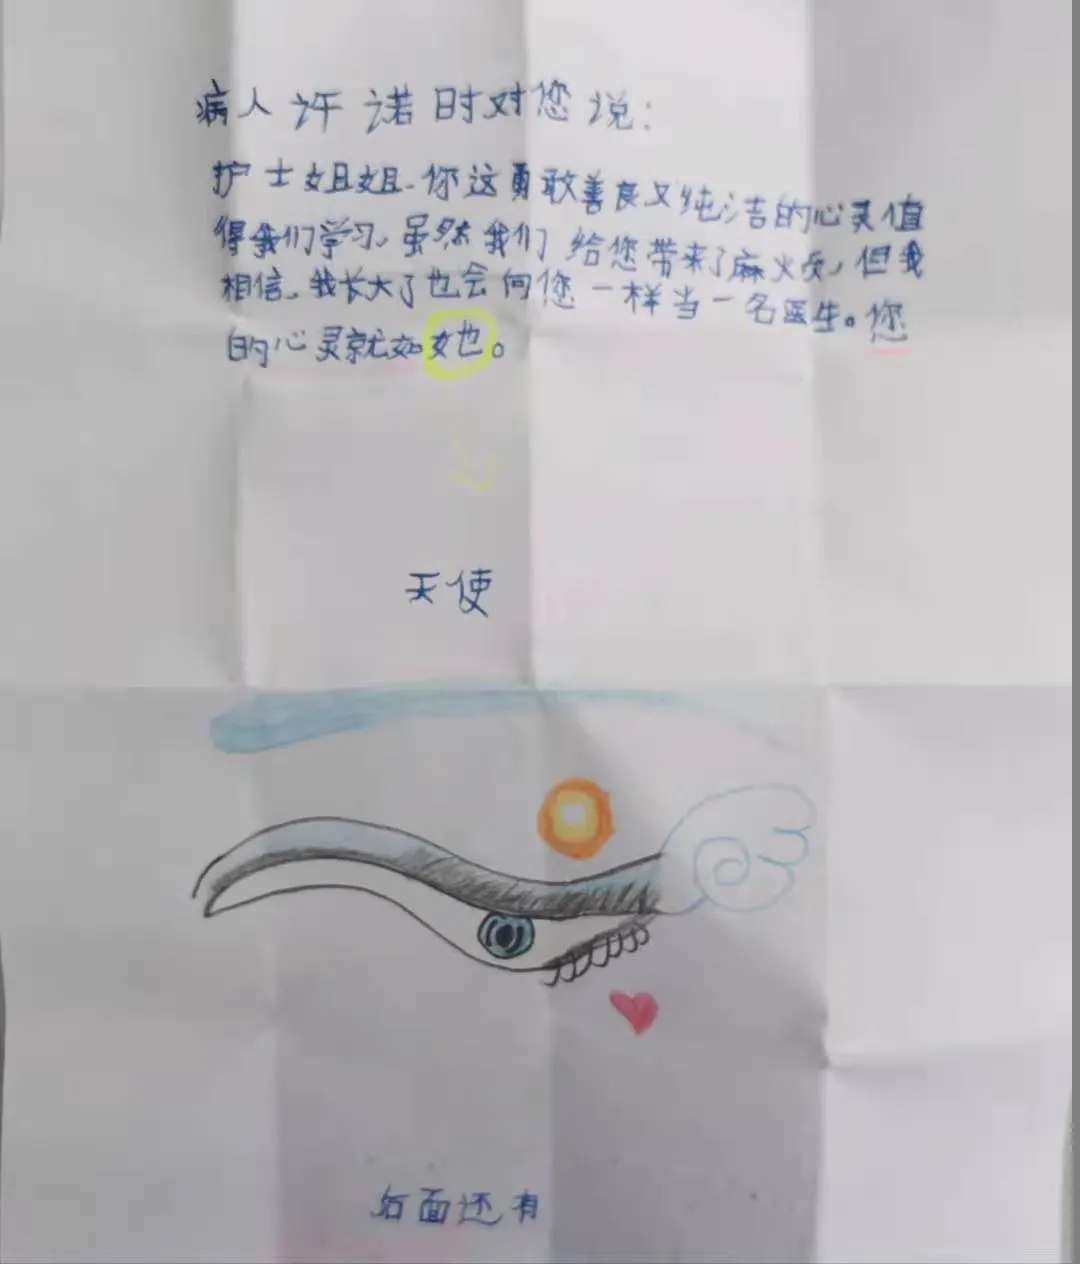 病人许诺时对您说：
护士姐姐、你这勇敢善良又纯洁的心灵值
得我们学习，虽然我们给您带来了麻烦，但我
相信，我长大了也会向您一样当一名医生。您
的心灵就如她。
天使
后面还有